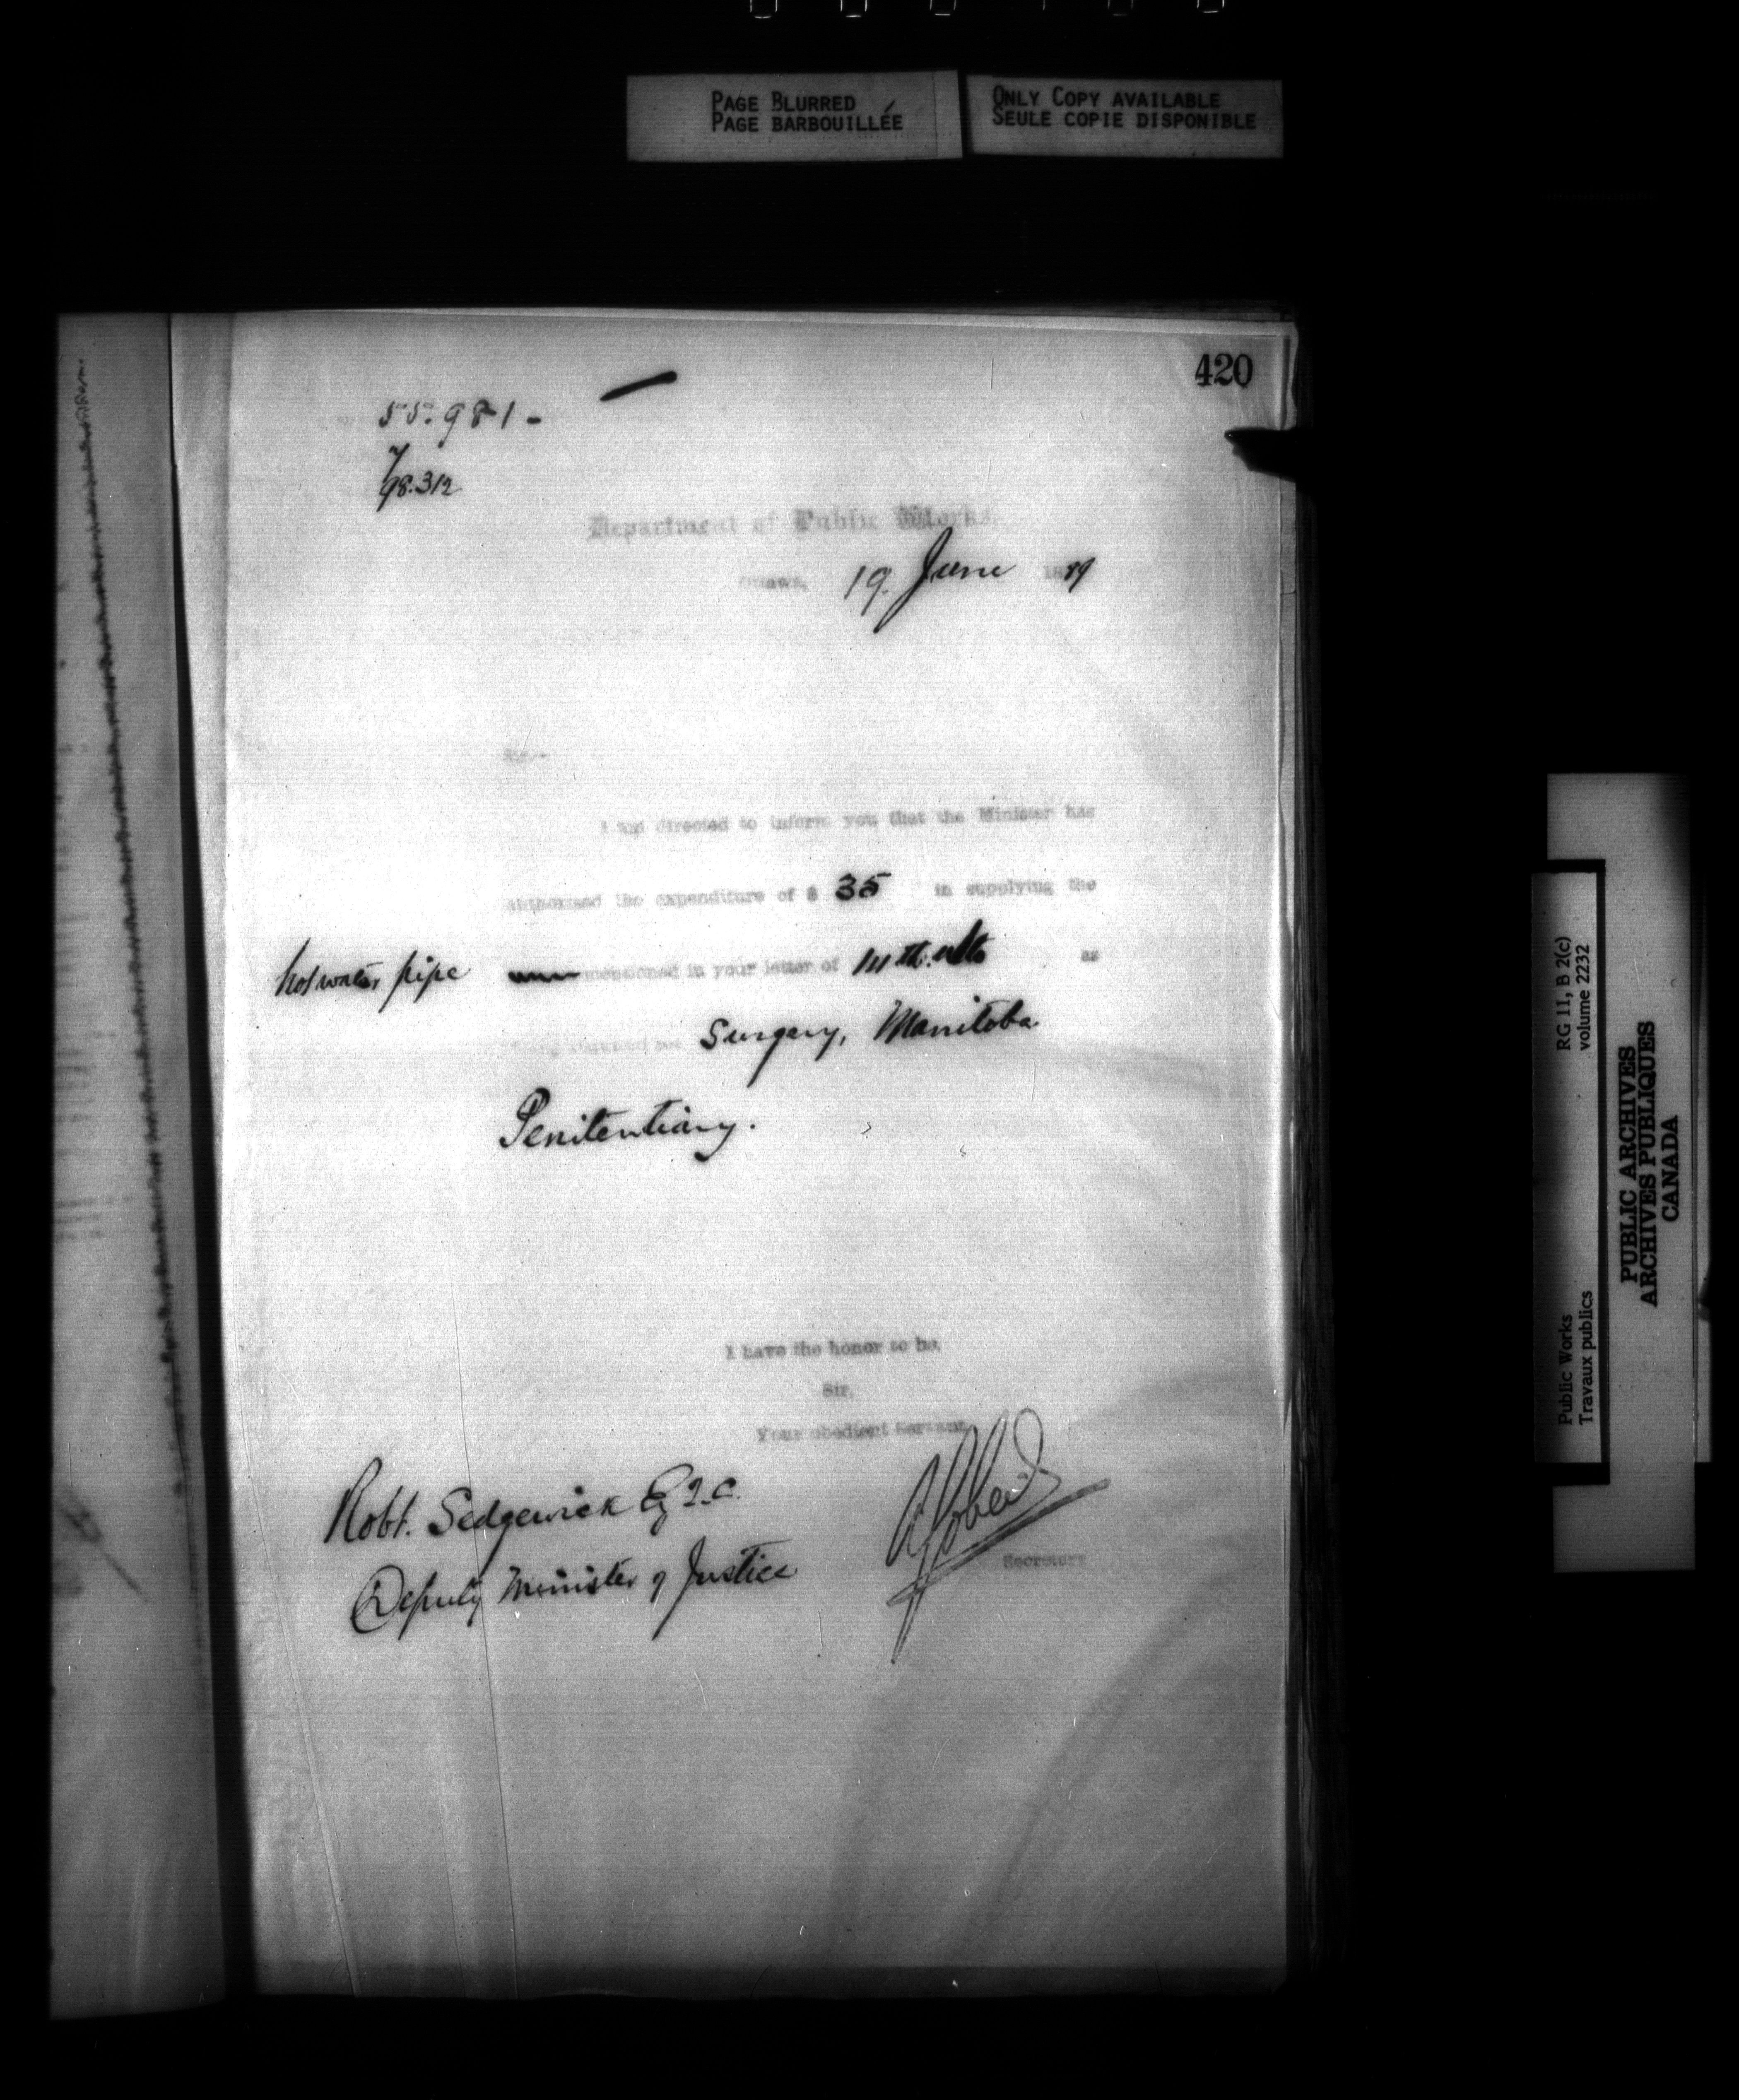 PAGE BLURRED
PAGE BARBOUILLÉE
ONLY COPY AVAILABLE
SEULE COPIE DISPONIBLE
420
55.981-
98.312
Department of Public Works.
Ottawa, 19. June 1889
Sir,—
I am directed to inform you that the Minister has
authorised the expenditure of $ 35 in supplying the
hot water pipe mentioned in your letter of ulto as
Surgery, Manitoba
Penitentiary.
I have the honor to be,
Sir,
Your obedient servant,
Robt. Sedgewick Esq Q.C.
Deputy Minister of Justice
Secretary
Public Works
Travaux publics
RG 11, B 2(c)
volume 2232
PUBLIC ARCHIVES
ARCHIVES PUBLIQUES
CANADA